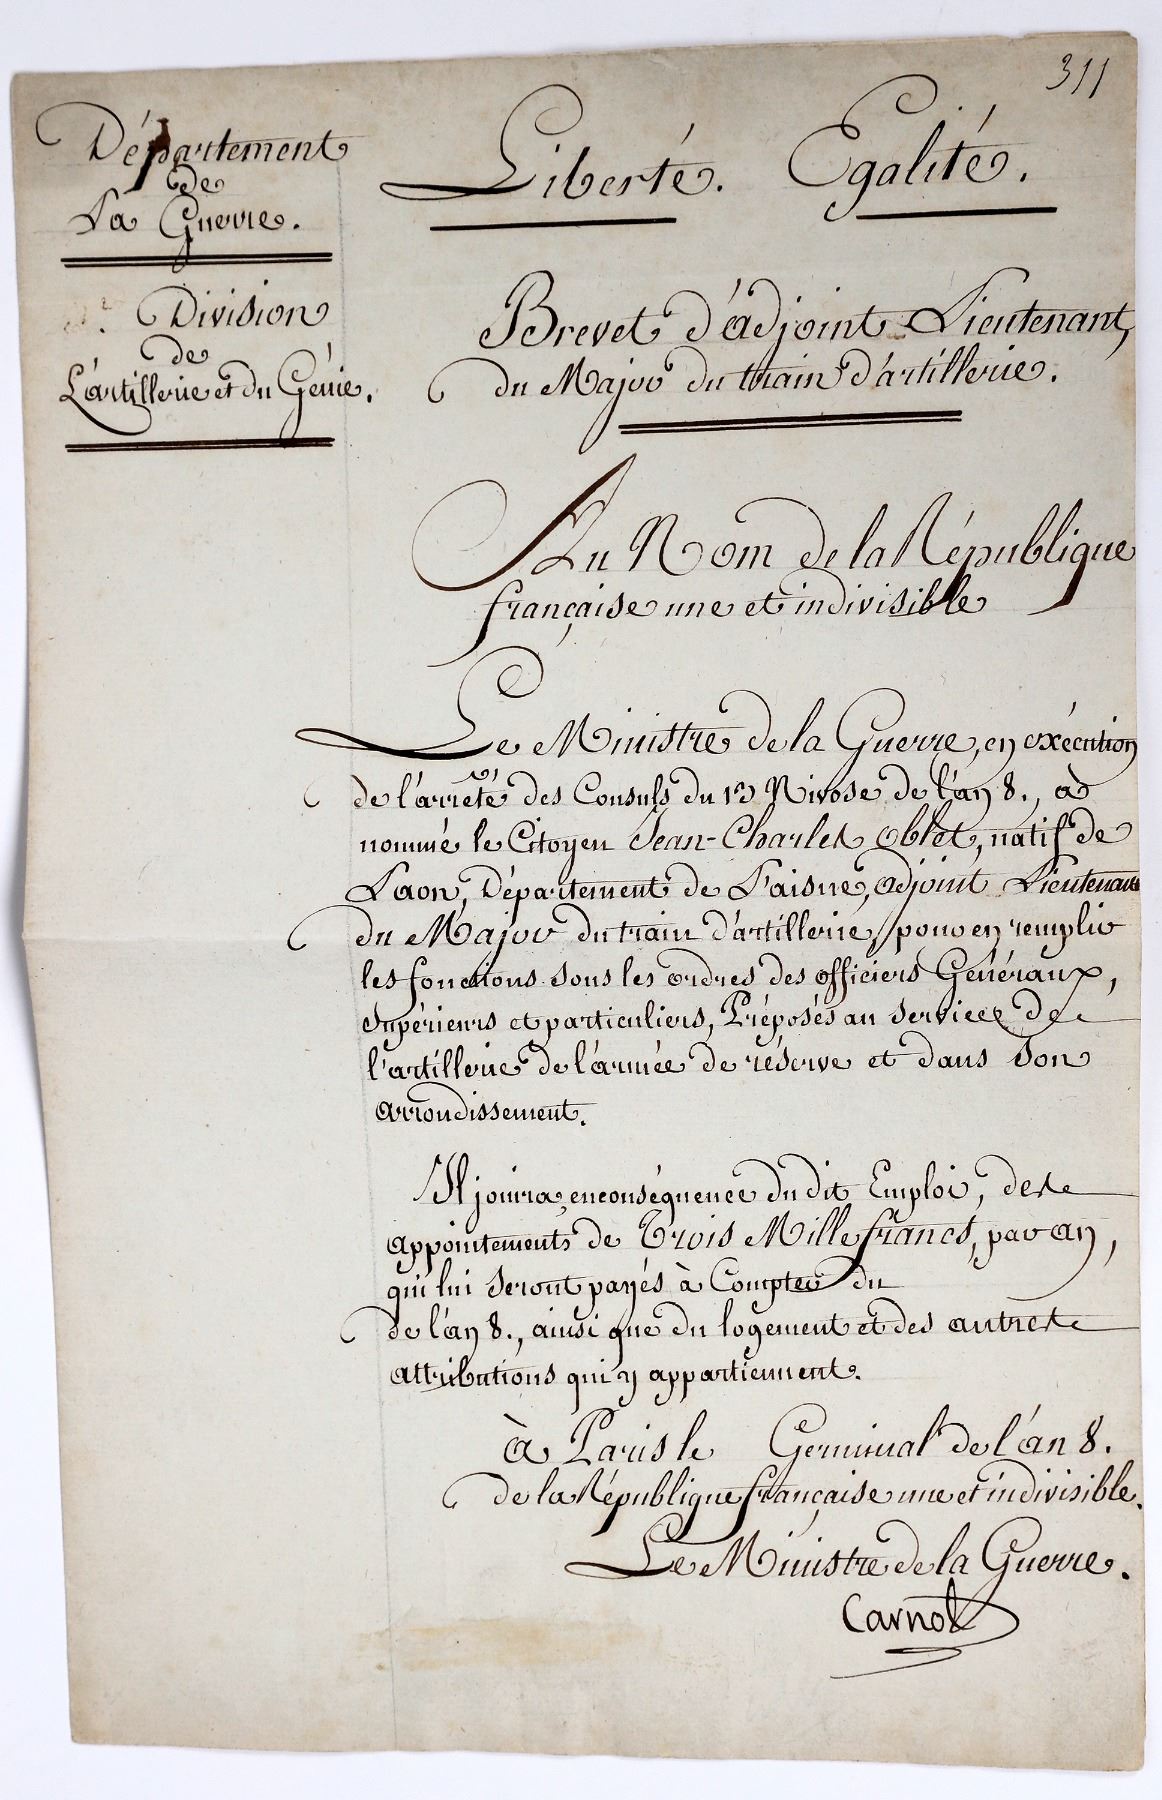 311
Département
de
La Guerre.
Division
de
L'artillerie et du Génie.
Liberté. Egalité.
Brevet d'adjoint Lieutenant,
du Major du train d'artillerie.
Au Nom de la République
française une et indivisible
Le Ministre de la Guerre, en exécution
de l'arrêté des Consuls du 13 Nivose de l'an 8., a
nommé le Citoyen Jean-Charles Oblet, natif de
Laon, Département de L'aisne, adjoint Lieutenant
du Major du train d'artillerie, pour en remplir
les fonctions sous les ordres des officiers Généraux,
Supérieurs et particuliers, Préposés au service de
l'artillerie de l'armée de réserve et dans son
arrondissement.
Il jouira, en conséquence du dit Emploi, des
appointements de Trois Mille francs, par an,
qui lui seront payés à Compter du
de l'an 8., ainsi que du logement et des autres
attributions qui y appartiennent.
à Paris le Germinal de l'an 8.
de la République française une et indivisible.
Le Ministre de la Guerre.
Carnot